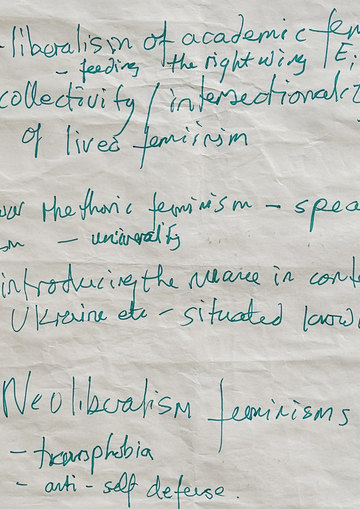 -liberalism of academic fem
- feeding the right wing E;
collectivity / intersectionali
of lived feminism
rhethoric feminism - spea
sm - univerality
introducing the nuance in cont
Ukraine etc - situated know
Neoliberalism feminisms
- transphobia
- anti-self defense.